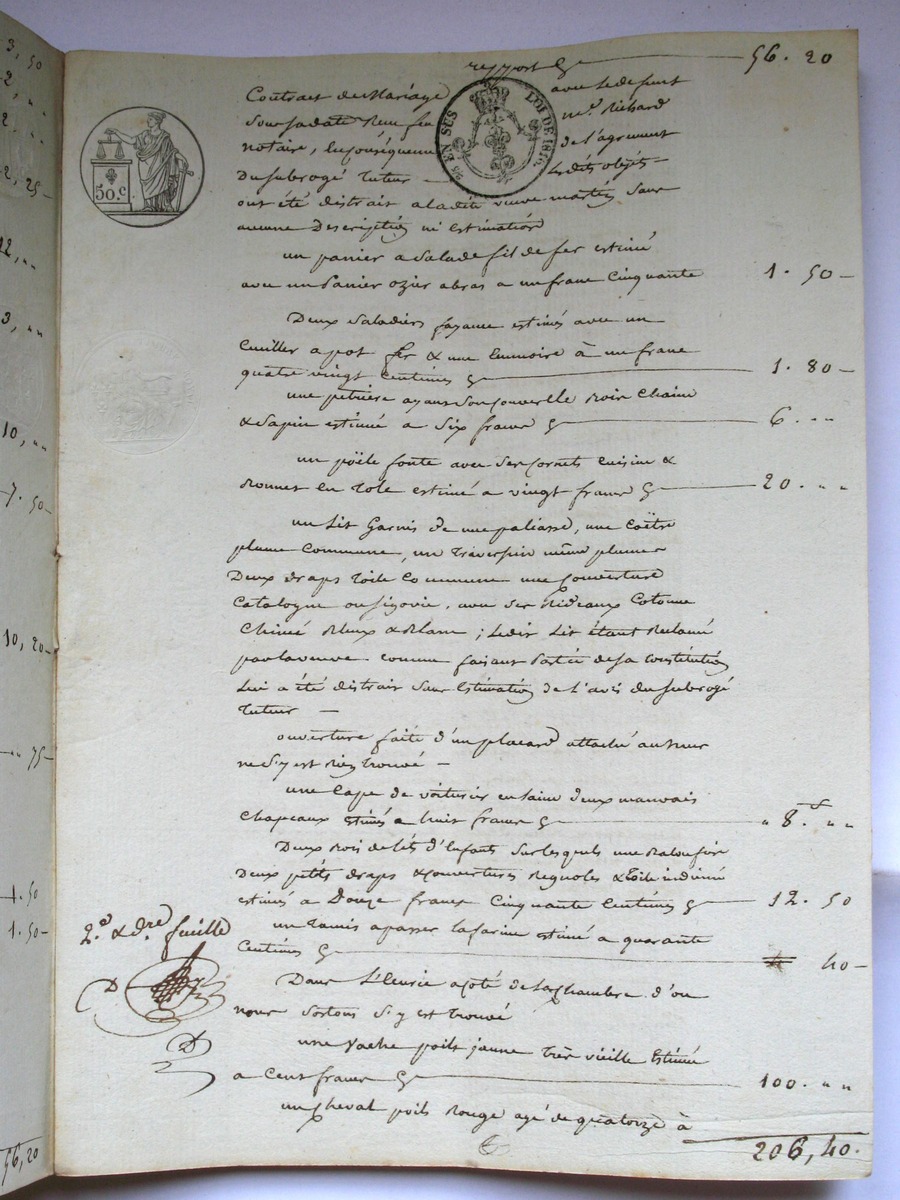 3, 50
2, „
2. „
2, 25 -
12, „
3, „
10, „
7. 50 -
10, 20 -
75 -
1. 50
1. 50 -
56, 20
50. c
EN SUS LOI DE 1816
report 56. 20
Contrat de Mariage avec le defunt
sous sa date Reçu m.e Richard
notaire, le conséquence de l'agrement
du subrogé tuteur — Lesdits objets —
ont été distrait a ladite veuve sans
aucune Description ni Estimation
un panier a Salade fil de fer estimé
avec un Panier ozier a bras a un franc Cinquante 1. 50 —
Deux Saladiers fayance estimés avec un
Cuiller a pot fer & une à un franc
quatre vingt Centimes 1. 80 —
une petrière ayant son couvercle Bois Chaine
& Sapin estimée a Six francs 6. „
un poële fonte avec ses Cornets Cuisine &
en Tole estimé a vingt francs 20. „ „
un Lit Garnis de une paliasse, une Coëtre
plume Commune, un Traversin même plumes
Deux draps Toile Commune une Couverture
Catalogne ou Segovie, avec ses Rideaux Cotonne
Chiné Bleux & Blanc ; Ledit Lit étant Reclamé
par la veuve comme faisant Partie de sa Constitution
Lui a été distrait Sans Estimation de l'avis du Subrogé
Tuteur —
ouverture faite d'un placard attaché au mur
ne s'y est Rien Trouvé —
une Cape de voiturier en laine deux mauvais
Chapeaux Estimés a huit francs „ 8. „ „
Deux Bois de Lits d'Enfants Sur lesquels une
Deux petits draps & Couvertures & Toile indienne
estimés a Douze francs Cinquante Centimes 12. 50
un Tamis a passer la farine estimé a quarante
Centimes 40 —
2.e & dre feuille
Dans L'Ecurie a coté de la Chambre d'ou
nous Sortons S'y est Trouvé
une Vache poils jaune Très vieille Estimée
a Cent francs 100. „ „
un Cheval poils Rouge agé de quatorze à
206, 40.